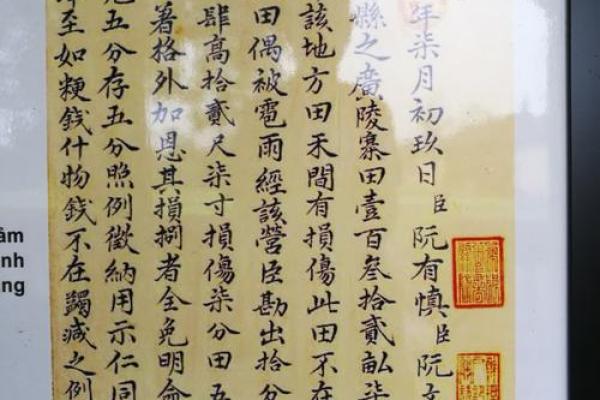 年柒月初玖日臣阮有慎臣阮文
縣之廣陵寨田壹百叄拾貳畝柒
該地方田禾間有損傷此田不在
田偶被雹雨經該營臣勘出拾分
肆高拾貳尺柒寸損傷柒分田五
著格外加恩其損捌者全免明命
五分存五分照例徵納用示仁同
至如粳錢什物錢不在蠲減之例
ảm
nh
ng